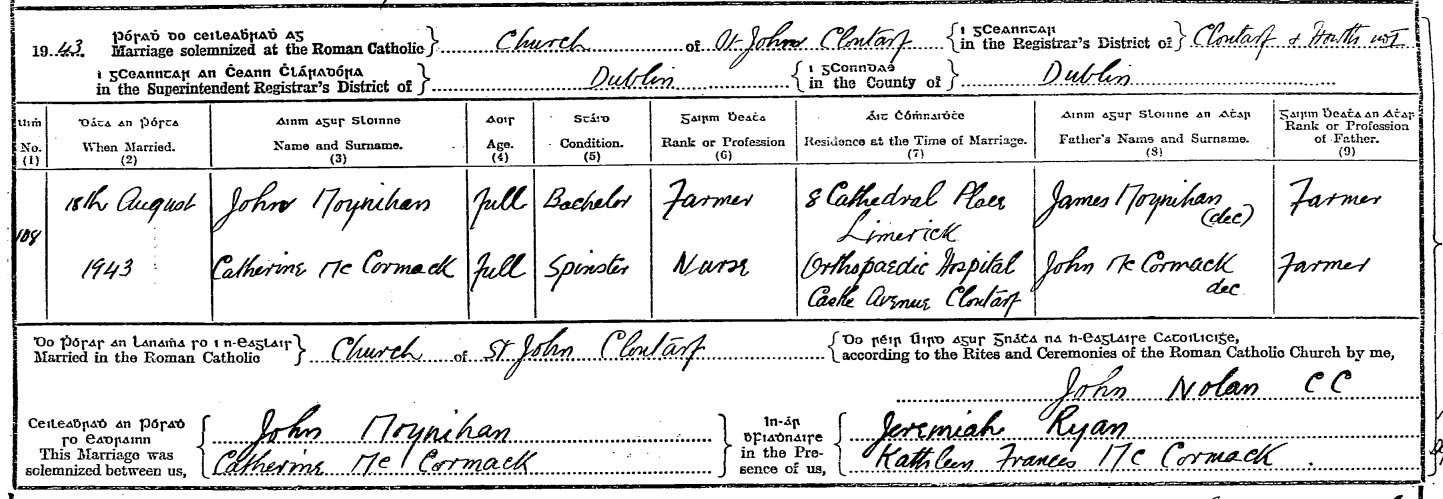 1943. Pórað do ceileabrað ag
Marriage solemnized at the Roman Catholic } Church of St John Clontarf { i gCeanntar
in the Registrar's District of } Clontarf & Howth
i gCeanntar an Ċeann Ċláraḋóra
in the Superintendent Registrar's District of } Dublin { i gConndae
in the County of } Dublin
Uiṁ Dáta an Pósta Ainm agus Sloinne Aois Stáid Gairm Beaṫa Áit Ċóṁnaiḋṫe Ainm agus Sloinne an Aṫar Gairm Beaṫa an Aṫar
No. When Married. Name and Surname. Age. Condition. Rank or Profession Residence at the Time of Marriage. Father's Name and Surname. Rank or Profession of Father.
(1) (2) (3) (4) (5) (6) (7) (8) (9)
108 18th August John Moynihan Full Bachelor Farmer 8 Cathedral Place James Moynihan Farmer
Limerick (dec)
1943 Catherine Mc Cormack Full Spinster Nurse Orthopaedic Hospital John Mc Cormack Farmer
Castle Avenue Clontarf dec
Do Pósaḋ an Lanaṁa so i n-Eaglais
Married in the Roman Catholic } Church of St John Clontarf { Do réir Uird agus Gnáṫa na h-Eaglaise Catoilicige,
according to the Rites and Ceremonies of the Roman Catholic Church by me,
John Nolan CC
Ceileabraḋ an Pósaḋ
so eadrainn
This Marriage was
solemnized between us, { John Moynihan
Catherine Mc Cormack }
In-ár
ḃfiaḋnaise
in the Presence of us, { Jeremiah Ryan
Kathleen Frances Mc Cormack .